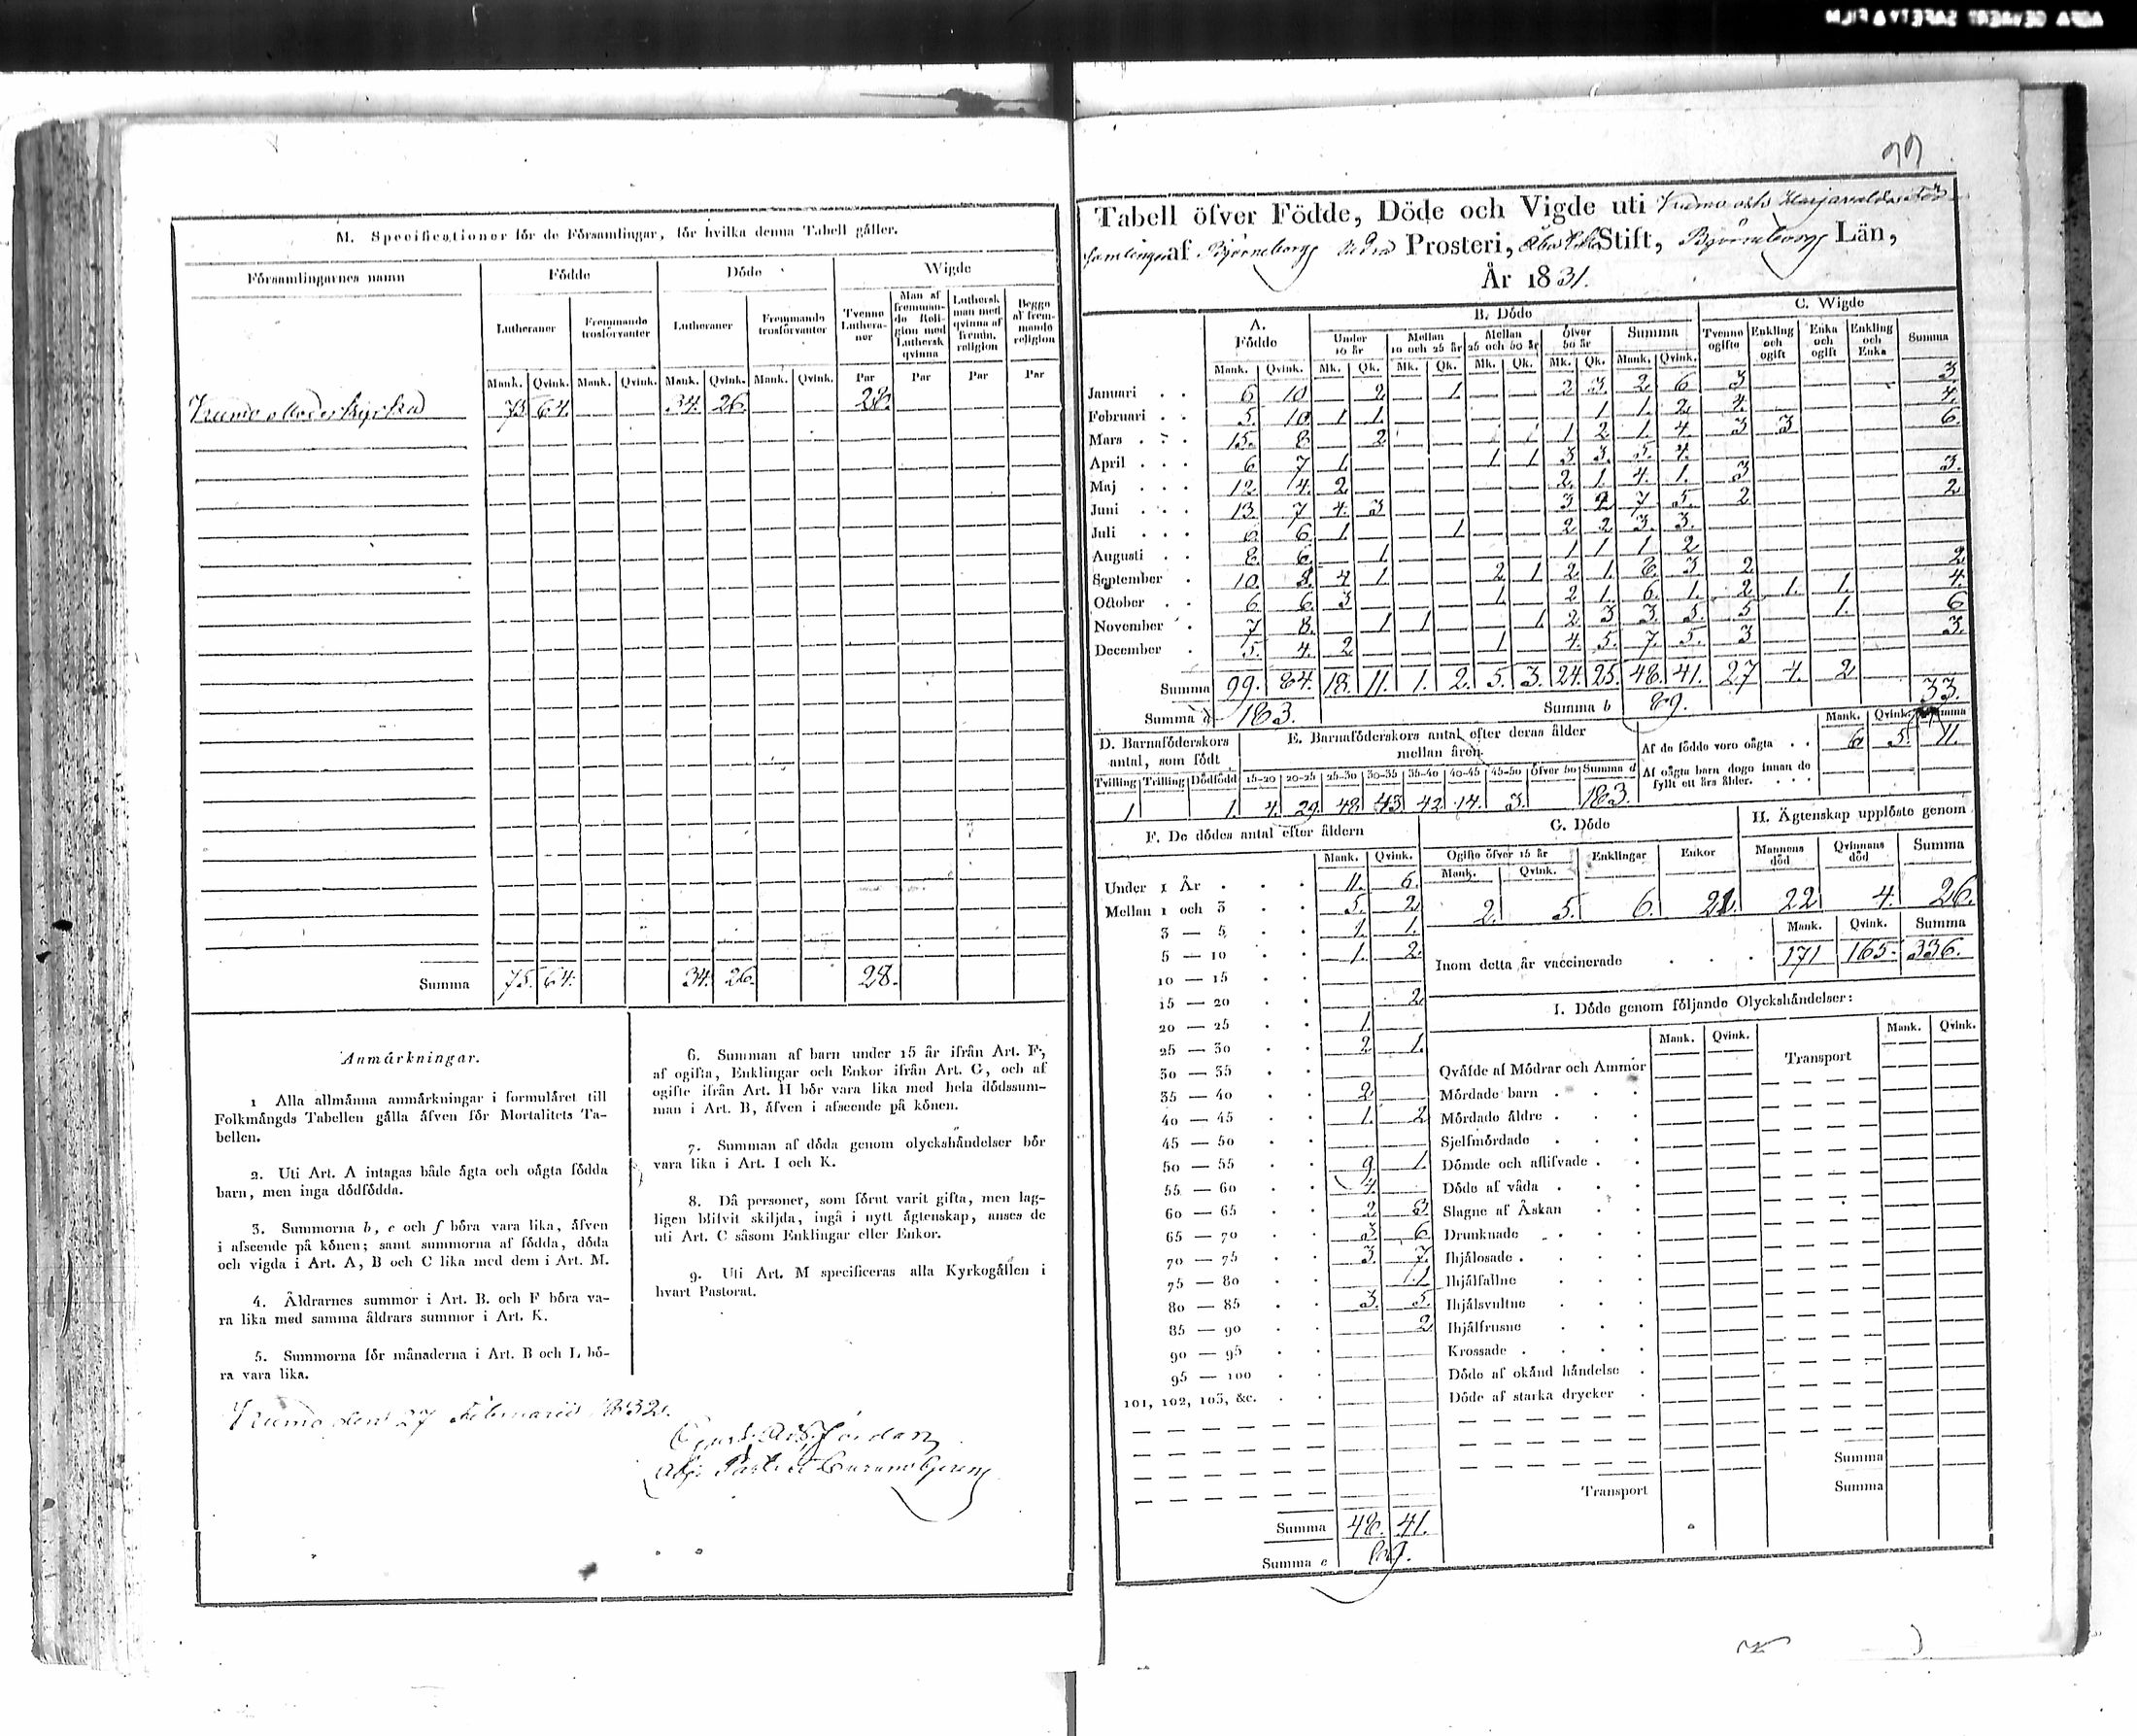 M. Specificationer för de Församlingar, för hvilka denna Tabell gäller.
Församlingarnes namn Födde Döde Wigde
Lutheraner Fremmande trosförvanter Lutheraner Fremmande trosförvanter Tvenne Lutheraner Man af fremmande Religion med Luthersk qvinna Luthersk man med qvinna af fremm. religion Begge af fremmande religion
Mank. Qvink. Mank. Qvink. Mank. Qvink. Mank. Qvink. Par Par Par Par
75 64. 34. 26. 28.
Summa 75. 64. 34. 26. 28.
Anmärkningar.
1 Alla allmänna anmärkningar i formuläret till
Folkmängds Tabellen gälla äfven för Mortalitets Ta-
bellen.
2. Uti Art. A intagas både ägta och oägta födda
barn, men inga dödfödda.
3. Summorna b, e och f böra vara lika, äfven
i afseende på könen; samt summorna af födda, döda
och vigda i Art. A, B och C lika med dem i Art. M.
4. Äldrarnes summor i Art. B. och F böra va-
ra lika med samma åldrars summor i Art. K.
5. Summorna för månaderna i Art. B och L bö-
ra vara lika.
6. Summan af barn under 15 år ifrån Art. F,
af ogifta, Enklingar och Enkor ifrån Art. G, och af
ogifte ifrån Art. H bör vara lika med hela dödssum-
man i Art. B, äfven i afseende på könen.
7. Summan af döda genom olyckshändelser bör
vara lika i Art. I och K.
8. Då personer, som förut varit gifta, men lag-
ligen blifvit skiljda, ingå i nytt ägtenskap, anses de
uti Art. C såsom Enklingar eller Enkor.
9. Uti Art. M specificeras alla Kyrkogällen i
hvart Pastorat.
den 27 Februarii 1832.
Tabell öfver Födde, Döde och Vigde uti
af Björneborgs Prosteri, Stift, Björneborgs Län,
År 1831.
A. Födde B. Döde C. Wigde
Under 10 år Mellan 10 och 25 år Mellan 25 och 50 år Öfver 50 år Summa Tvenne ogifte Enkling och ogift Enka och ogift Enkling och Enka Summa
Mank. Qvink. Mk. Qk. Mk. Qk. Mk. Qk. Mk. Qk. Mank. Qvink.
Januari 6 10 2 1 2 3 2 6 3 3
Februari 5. 10 1 1 1 1 2 4. 4.
Mars 15. 8 2 1 1 2 1 4. 3 3 6.
April 6 7 1 1 1 3 3. 5 4.
Maj 12 4. 2 2 1 4. 1. 3 3.
Juni 13. 7 4. 3 3 2 7 5. 2 2
Juli 6 6 1 1 2 2 3. 3.
Augusti 8. 6. 1 1 1 1 2
September 10. 8. 4 1. 2 1 2 1. 8. 3 2 2
October 6. 6. 3 1. 2 1. 6. 1. 2 1. 1. 4.
November 7 8. 1 1 1 2 3 3. 5. 5 1. 6
December 5. 4. 2 1 4. 5. 7. 5. 3 3.
Summa 99. 84. 18. 11. 1. 2. 5. 3. 24. 25. 48. 41. 27 4. 2 33.
Summa a 183. Summa b 89.
D. Barnaföderskors antal, som födt
E. Barnaföderskors antal efter deras ålder mellan åren
Tvilling Trilling Dödfödd 15-20 20-25 25-30 30-35 35-40 40-45 45-50 Öfver 50 Summa d
1 1. 4. 29. 48. 43 42. 14. 3. 183.
Mank. Qvink. Summa
Af de födde voro oägta 6 5. 11.
Af oägta barn dogo innan de
fyllt ett års ålder.
F. De dödes antal efter åldern
Mank. Qvink.
Under 1 År 11. 6.
Mellan 1 och 3 5. 2
3 — 5 1. 1.
5 — 10 1. 2.
10 — 15
15 — 20 2
20 — 25 1.
25 — 30 2 1.
30 — 35
35 — 40 2.
40 — 45 1. 2
45 — 50
50 — 55 9. 1.
55 — 60 4.
60 — 65 2 3.
65 — 70 3 6.
70 — 75 3. 7.
75 — 80 1
80 — 85 3. 5.
85 — 90 2
90 — 95
95 — 100
101, 102, 103, &c.
Summa 48. 41.
Summa e 89.
G. Döde
Ogifte öfver 15 år Enklingar Enkor
Mank. Qvink.
2. 5. 6. 21.
H. Ägtenskap upplöste genom
Mannens död Qvinnans död Summa
22 4. 26.
Mank. Qvink. Summa
Inom detta år vaccinerade 171 165. 336.
I. Döde genom följande Olyckshändelser:
Mank. Qvink. Transport Mank. Qvink.
Qväfde af Mödrar och Ammor
Mördade barn
Mördade äldre
Sjelfmördade
Dömde och aflifvade
Döde af våda
Slagne af Åskan
Drunknade
Ihjälosade
Ihjälfallne
Ihjälsvultne
Ihjälfrusne
Krossade
Döde af okänd händelse
Döde af starka drycker
Summa
Transport Summa